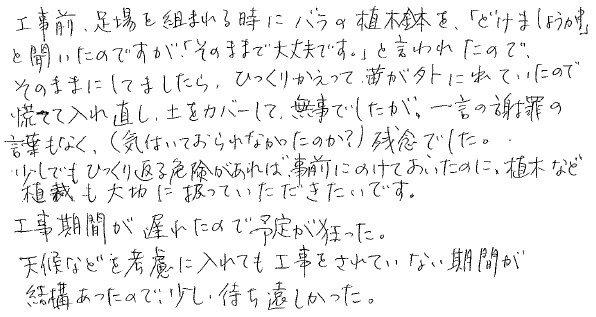 工事前、足場を組まれる時にバラの植木鉢を、「どけましょうか?」
と聞いたのですが、「そのままで大丈夫です。」と言われたので、
そのままにしてましたら、ひっくりかえって苗が外に出ていたので
慌てて入れ直し、土をカバーして、無事でしたが、一言の謝罪の
言葉もなく、(気付いておられなかったのか?)残念でした。
少しでもひっくり返る危険があれば事前にのけておいたのに、植木など
植栽も大切に扱っていただきたいです。
工事期間が遅れたので予定が狂った。
天候などを考慮に入れても工事をされていない期間が
結構あったので、少し待ち遠しかった。